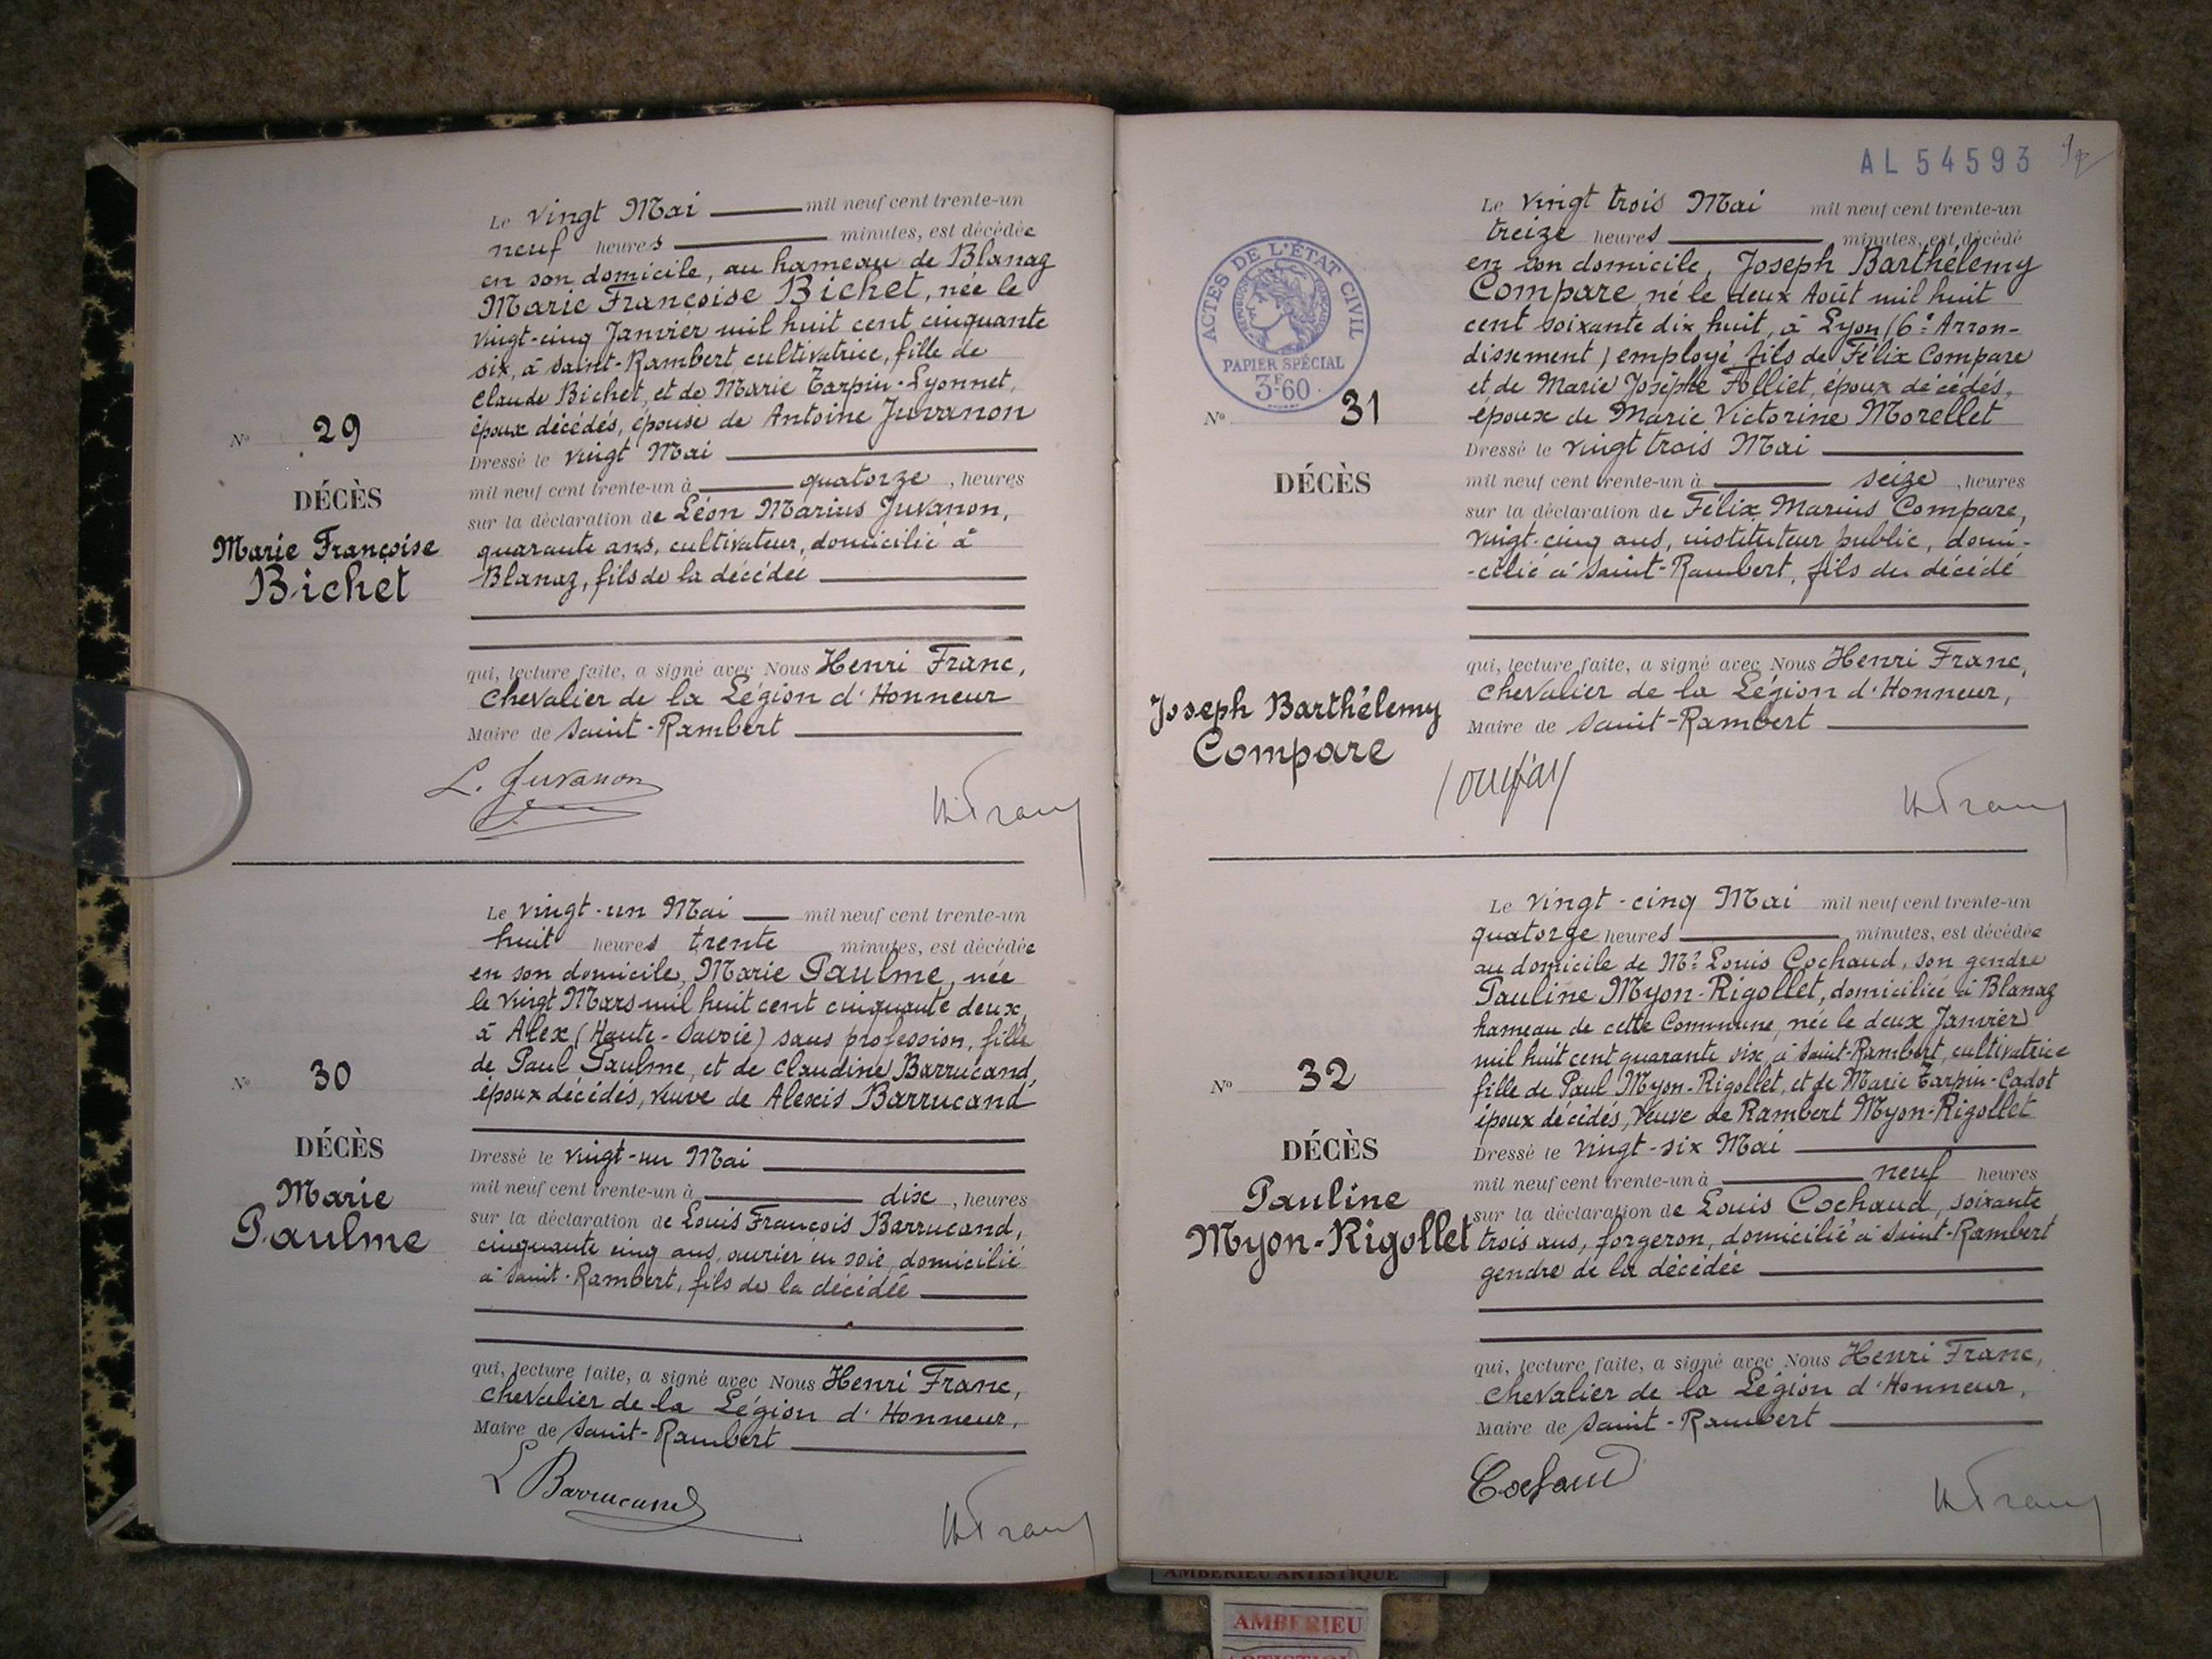 Le vingt Mai mil neuf cent trente-un
neuf heures minutes, est décédée
en son domicile, au hameau de Blanaz
Marie Françoise Bichet, née le
vingt-cinq Janvier mil huit cent cinquante
six, à Saint-Rambert, cultivatrice, fille de
Claude Bichet, et de Marie Tarpin-Lyonnet,
époux décédés, épouse de Antoine Juvanon
Dressé le vingt Mai
mil neuf cent trente-un à quatorze, heures
sur la déclaration de Léon Marius Juvanon,
quarante ans, cultivateur, domicilié à
Blanaz, fils de la décédée
qui, lecture faite, a signé avec Nous Henri Franc,
Chevalier de la Légion d'Honneur
Maire de Saint-Rambert
N° 29
DÉCÈS
Marie Françoise
Bichet
L. Juvanon
H. Franc
Le vingt-un Mai mil neuf cent trente-un
huit heures trente minutes, est décédée
en son domicile, Marie Paulme, née
le vingt Mars mil huit cent cinquante deux,
à Alex (Haute-Savoie) sans profession, fille
de Paul Paulme, et de Claudine Barrucand,
époux décédés, veuve de Alexis Barrucand
Dressé le vingt-un Mai
mil neuf cent trente-un à dix, heures
sur la déclaration de Louis François Barrucand,
cinquante cinq ans, ouvrier en soie, domicilié
à Saint-Rambert, fils de la décédée
qui, lecture faite, a signé avec Nous Henri Franc,
Chevalier de la Légion d'Honneur,
Maire de Saint-Rambert
N° 30
DÉCÈS
Marie
Paulme
L Barrucand
H. Franc
AL 54593
ACTES DE L'ÉTAT CIVIL
RÉPUBLIQUE FRANÇAISE
PAPIER SPÉCIAL
3F60
Le vingt trois Mai mil neuf cent trente-un
treize heures minutes, est décédé
en son domicile, Joseph Barthélemy
Compare né le deux Août mil huit
cent soixante dix huit, à Lyon (6e Arron-
dissement) employé, fils de Félix Compare
et de Marie Josèphe Folliet, époux décédés,
époux de Marie Victorine Morellet
Dressé le vingt trois Mai
mil neuf cent trente-un à seize, heures
sur la déclaration de Félix Marius Compare,
vingt-cinq ans, instituteur public, domi-
-cilié à Saint-Rambert, fils du décédé
qui, lecture faite, a signé avec Nous Henri Franc,
Chevalier de la Légion d'Honneur,
Maire de Saint-Rambert
N° 31
DÉCÈS
Joseph Barthélemy
Compare
H. Franc
Le vingt-cinq Mai mil neuf cent trente-un
quatorze heures minutes, est décédée
au domicile de Mr Louis Cochaud, son gendre
Pauline Myon-Rigollet, domiciliée à Blanaz
hameau de cette Commune, née le deux Janvier
mil huit cent quarante six, à Saint-Rambert, cultivatrice
fille de Paul Myon-Rigollet, et de Marie Tarpin-Cadot
époux décédés, Veuve de Rambert Myon-Rigollet
Dressé le vingt-six Mai
mil neuf cent trente-un à neuf heures
sur la déclaration de Louis Cochaud, soixante
trois ans, forgeron, domicilié à Saint-Rambert
gendre de la décédée
qui, lecture faite, a signé avec Nous Henri Franc,
Chevalier de la Légion d'Honneur,
Maire de Saint-Rambert
N° 32
DÉCÈS
Pauline
Myon-Rigollet
Cochaud
H. Franc
AMBERIEU ARTISTIQUE
AMBERIEU
ARTISTIQUE